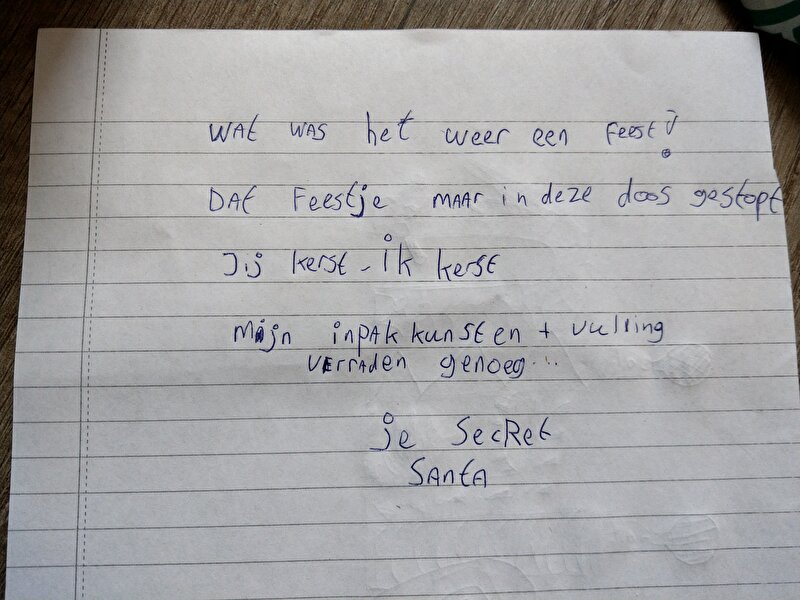 Wat was het weer een feest!
Dat feestje maar in deze doos gestopt
Jij kerst - ik kerst
Mijn inpakkunsten + vulling
verraden genoeg...
je Secret
Santa